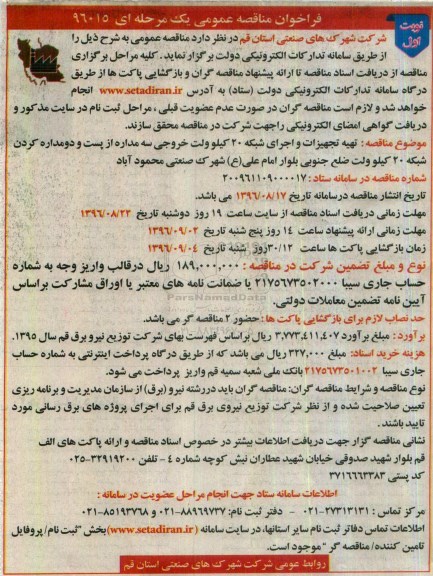 نوبت اول
فراخوان مناقصه عمومی یک مرحله ای ۹۶۰۱۵
شرکت شهرک های صنعتی استان قم در نظر دارد مناقصه عمومی به شرح ذیل را
از طریق سامانه تدارکات الکترونیکی دولت برگزار نماید. کلیه مراحل برگزاری
مناقصه از دریافت اسناد مناقصه تا ارائه پیشنهاد مناقصه گران و بازگشایی پاکت ها از طریق
درگاه سامانه تدارکات الکترونیکی دولت (ستاد) به آدرس www.setadiran.ir انجام
خواهد شد و لازم است مناقصه گران در صورت عدم عضویت قبلی، مراحل ثبت نام در سایت مذکور و
دریافت گواهی امضای الکترونیکی را جهت شرکت در مناقصه محقق سازند.
موضوع مناقصه: تهیه تجهیزات و اجرای شبکه ۲۰ کیلو ولت خروجی سه مداره از پست و دومداره کردن
شبکه ۲۰ کیلو ولت ضلع جنوبی بلوار امام علی(ع) شهرک صنعتی محمود آباد
شماره مناقصه در سامانه ستاد: ۲۰۰۹۶۱۱۰۹۰۰۰۰۱۷
تاریخ انتشار مناقصه درسامانه تاریخ ۱۳۹۶/۰۸/۱۷ می باشد.
مهلت زمانی دریافت اسناد مناقصه از سایت ساعت ۱۹ روز دوشنبه تاریخ ۱۳۹۶/۰۸/۲۲
مهلت زمانی ارائه پیشنهاد ساعت ۱۴ روز پنج شنبه تاریخ ۱۳۹۶/۰۹/۰۲
زمان بازگشایی پاکت ها ساعت ۱۲/۳۰ روز شنبه تاریخ ۱۳۹۶/۰۹/۰۴
نوع و مبلغ تضمین شرکت در مناقصه: ۱۸۹,۰۰۰,۰۰۰ ریال درقالب واریز وجه به شماره
حساب جاری سیبا ۲۱۷۵۶۷۳۵۰۲۰۰۰ یا ضمانت نامه های معتبر یا اوراق مشارکت براساس
آیین نامه تضمین معاملات دولتی.
حد نصاب لازم برای بازگشایی پاکت ها: حضور ۲ مناقصه گر می باشد.
برآورد: مبلغ برآورد ۳,۷۷۳,۴۱۱,۴۰۷ ریال براساس فهرست بهای شرکت توزیع نیرو برق قم سال ۱۳۹۵.
هزینه خرید اسناد: مبلغ ۳۲۷,۰۰۰ ریال می باشد که از طریق درگاه پرداخت اینترنتی به شماره حساب
جاری سیبا ۲۱۷۵۶۷۳۵۰۱۰۰۲ بانک ملی شعبه سمیه قم واریز پرداخت می شود.
نوع مناقصه و شرایط مناقصه گران: مناقصه گران باید دررشته نیرو (برق) از سازمان مدیریت و برنامه ریزی
تعیین صلاحیت شده و از نظر شرکت توزیع نیروی برق قم برای اجرای پروژه های برق رسانی مورد
تایید باشند.
نشانی مناقصه گزار جهت دریافت اطلاعات بیشتر در خصوص اسناد مناقصه و ارائه پاکت های الف
قم بلوار شهید صدوقی خیابان شهید عطاران نبش کوچه شماره ۴ - تلفن ۳۲۹۱۹۲۰۰-۰۲۵
کد پستی ۳۷۱۶۶۶۳۳۸۳
اطلاعات سامانه ستاد جهت انجام مراحل عضویت در سامانه:
مرکز تماس: ۲۷۳۱۳۱۳۱-۰۲۱ - دفتر ثبت نام: ۸۸۹۶۹۷۳۷-۰۲۱ و ۸۵۱۹۳۷۶۸-۰۲۱
اطلاعات تماس دفاتر ثبت نام سایر استانها، در سایت سامانه (www.setadiran.ir) بخش "ثبت نام/ پروفایل
تامین کننده/ مناقصه گر" موجود است.
روابط عمومی شرکت شهرک های صنعتی استان قم